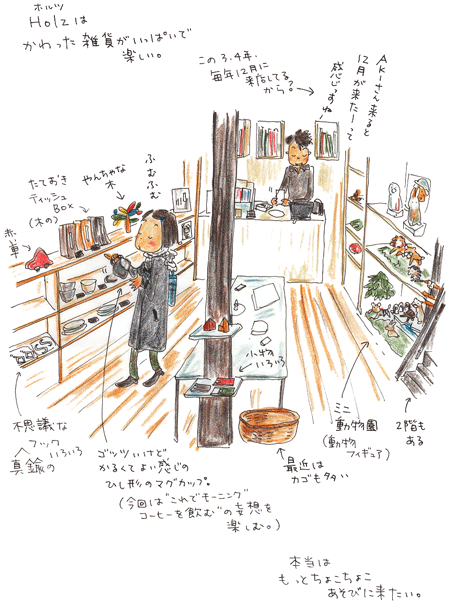 ホルツ
Holzは
かわった雑貨がいっぱいで
楽しい。
この3、4年、
毎年12月に
来店してる
から?
Akiさん来ると
12月が来たーって
感じっすねー
ふむふむ
やんちゃな
木
たておき
ティッシュ
BOX
(木の)
赤い
車
小物
いろいろ
不思議な
フック
いろいろ
真鍮の
ゴッツいけど
かるくてよい感じの
ひし形のマグカップ。
(今回は"これでモーニング
コーヒーを飲む"の妄想を
楽しむ。)
最近は
カゴも多い
ミニ
動物園
(動物
フィギュア)
2階も
ある
本当は
もっとちょこちょこ
あそびに来たい。